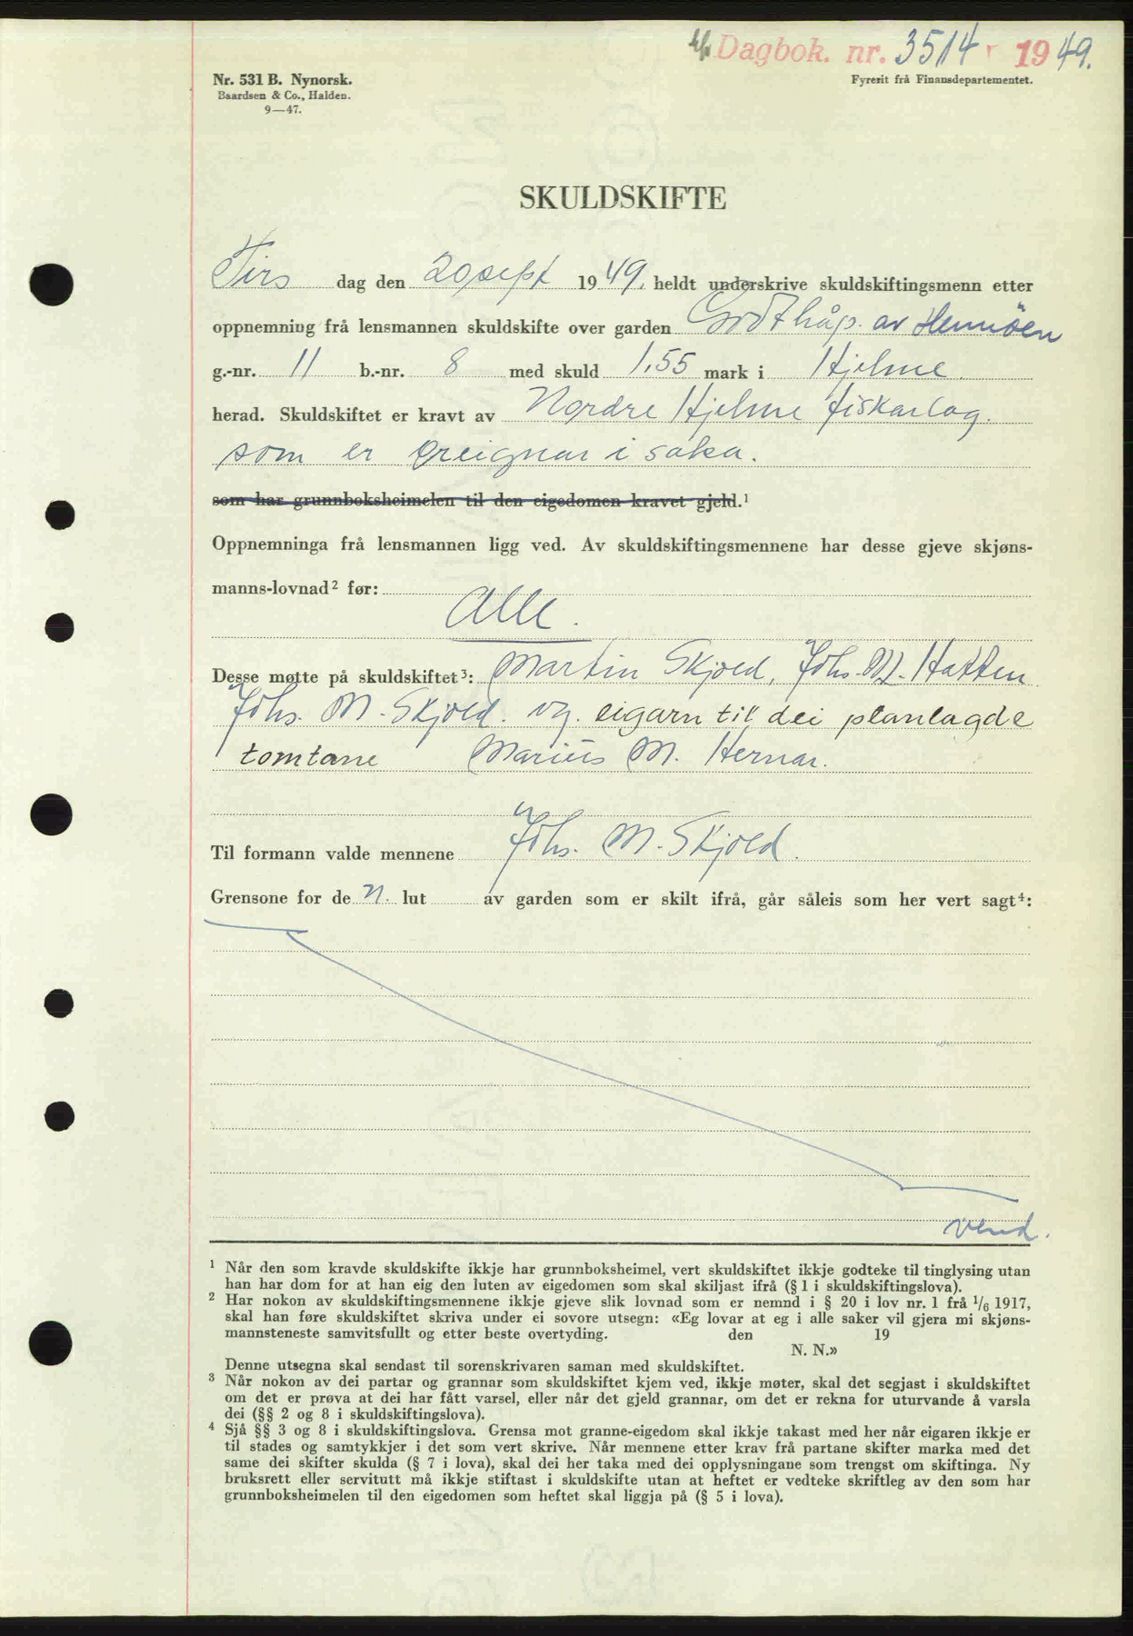 Dagbok. nr. 3514 1949.
Nr. 531 B. Nynorsk.
Fyrerit frå Finansdepartementet.
Baardsen & Co., Halden.
9—47.
SKULDSKIFTE
Tirs dag den 20 sept 1949. heldt underskrive skuldskiftingsmenn etter
oppnemning frå lensmannen skuldskifte over garden Godthåp. av Hennøen
g.-nr. 11 b.-nr. 8 med skuld 1,55 mark i Hjelme
herad. Skuldskiftet er kravt av Nordre Hjelme fiskarlag.
som er i saka.
som har grunnboksheimelen til den eigedomen kravet gjeld.¹
Oppnemninga frå lensmannen ligg ved. Av skuldskiftingsmennene har desse gjeve skjøns-
manns-lovnad² før:
Alle.
Desse møtte på skuldskiftet³: Martin Skjold, Johs. M. Hatten
Johs. M. Skjold. og. eigarn til dei planlagde
tomtane Marius M. Hernar.
Til formann valde mennene Johs. M. Skjold.
Grensone for de n. lut av garden som er skilt ifrå, går såleis som her vert sagt⁴:
vend.
¹ Når den som kravde skuldskifte ikkje har grunnboksheimel, vert skuldskiftet ikkje godteke til tinglysing utan
han har dom for at han eig den luten av eigedomen som skal skiljast ifrå (§ 1 i skuldskiftingslova).
² Har nokon av skuldskiftingsmennene ikkje gjeve slik lovnad som er nemnd i § 20 i lov nr. 1 frå 1/6 1917,
skal han føre skuldskiftet skriva under ei sovore utsegn: «Eg lovar at eg i alle saker vil gjera mi skjøns-
mannsteneste samvitsfullt og etter beste overtyding. den 19
N. N.»
Denne utsegna skal sendast til sorenskrivaren saman med skuldskiftet.
³ Når nokon av dei partar og grannar som skuldskiftet kjem ved, ikkje møter, skal det segjast i skuldskiftet
om det er prøva at dei har fått varsel, eller når det gjeld grannar, om det er rekna for uturvande å varsla
dei (§§ 2 og 8 i skuldskiftingslova).
⁴ Sjå §§ 3 og 8 i skuldskiftingslova. Grensa mot granne-eigedom skal ikkje takast med her når eigaren ikkje er
til stades og samtykkjer i det som vert skrive. Når mennene etter krav frå partane skifter marka med det
same dei skifter skulda (§ 7 i lova), skal dei her taka med dei opplysningane som trengst om skiftinga. Ny
bruksrett eller servitutt må ikkje stiftast i skuldskifte utan at heftet er vedteke skriftleg av den som har
grunnboksheimelen til den eigedomen som heftet skal liggja på (§ 5 i lova).